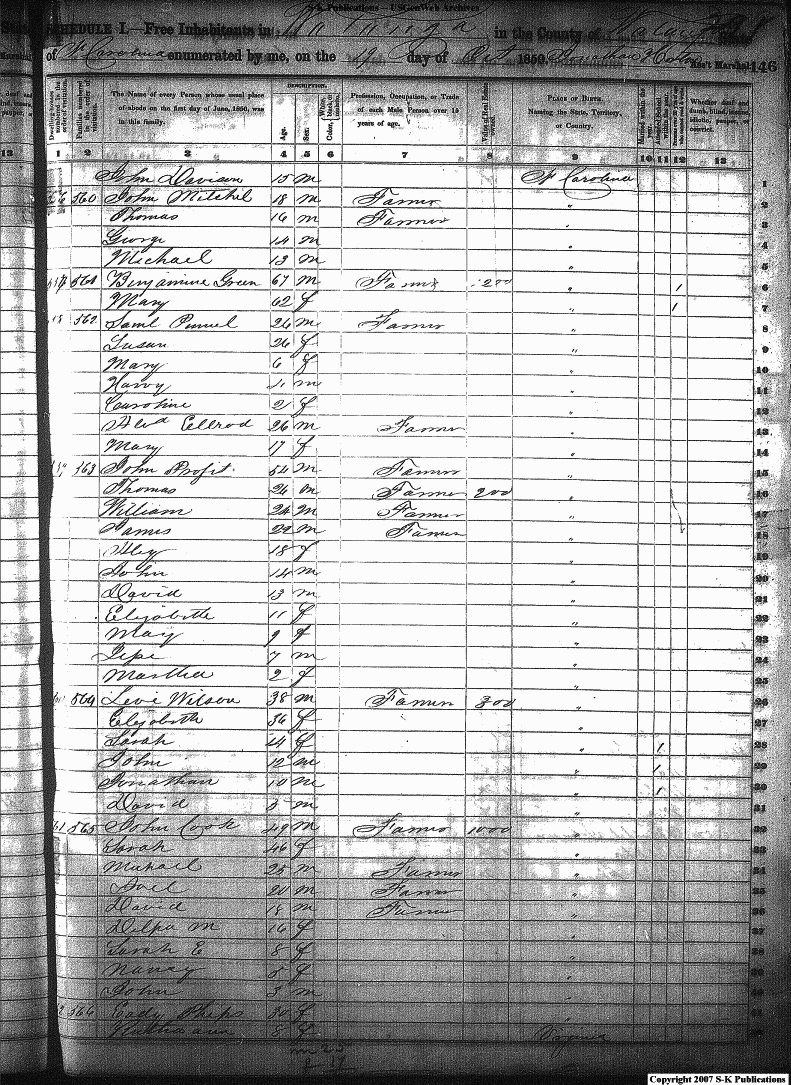 S-K Publications - USGenWeb Archives
SCHEDULE I.—Free Inhabitants in Watauga in the County of Watauga State
of N Carolina enumerated by me, on the 19 day of Oct 1850. Jonathan Horton Ass't Marshal 146
DESCRIPTION.
Dwelling-houses numbered in the order of visitation. Families numbered in the order of visitation. The Name of every Person whose usual place of abode on the first day of June, 1850, was in this family. Age. Sex. Color, White, black, or mulatto. Profession, Occupation, or Trade of each Male Person over 15 years of age. Value of Real Estate owned. PLACE OF BIRTH. Naming the State, Territory, or Country. Married within the year. Whether deaf and dumb, blind, insane, idiotic, pauper, or convict.
13 1 2 3 4 5 6 7 8 9 10 11 12 13
John Davison 15 m N Carolina 1
560 John Mitchel 18 m Farmer " 2
Thomas 16 m Farmer " 3
George 14 m " 4
Michael 13 m " 5
561 Benjamine Green 67 m Farmer 200 " 1 6
Mary 62 f " 1 7
562 Saml 26 m Farmer " 8
Susan 26 f " 9
Mary 6 f " 10
Harvy m " 11
Caroline 2 f " 12
Ellrod 26 m Farmer " 13
Mary 17 f " 14
563 John Profit 54 m Farmer " 15
Thomas 26 m Farmer 200 " 16
William 24 m Farmer " 17
James 22 m Farmer " 18
18 f " 19
John 14 m " 20
David 13 m " 21
Elizabeth 11 f " 22
May 9 f " 23
7 m " 24
Martha 2 f " 25
564 Levi Wilson 38 m Farmer 300 " 26
Elizabeth 36 f " 27
Sarah 14 f " 1 28
John 12 m " 1 29
Jonathan 10 m " 1 30
David m " 31
565 John Cook 49 m Farmer 1000 " 32
Sarah 46 f " 33
Michael 25 m Farmer " 34
m Farmer " 35
David 18 m Farmer " 36
M 16 f "
Sarah E 8 f " 38
Nancy 5 f " 39
John 3 m "
566 Phips 30 f " 41
8 f Virginia
m 25
17
Copyright 2007 S-K Publications